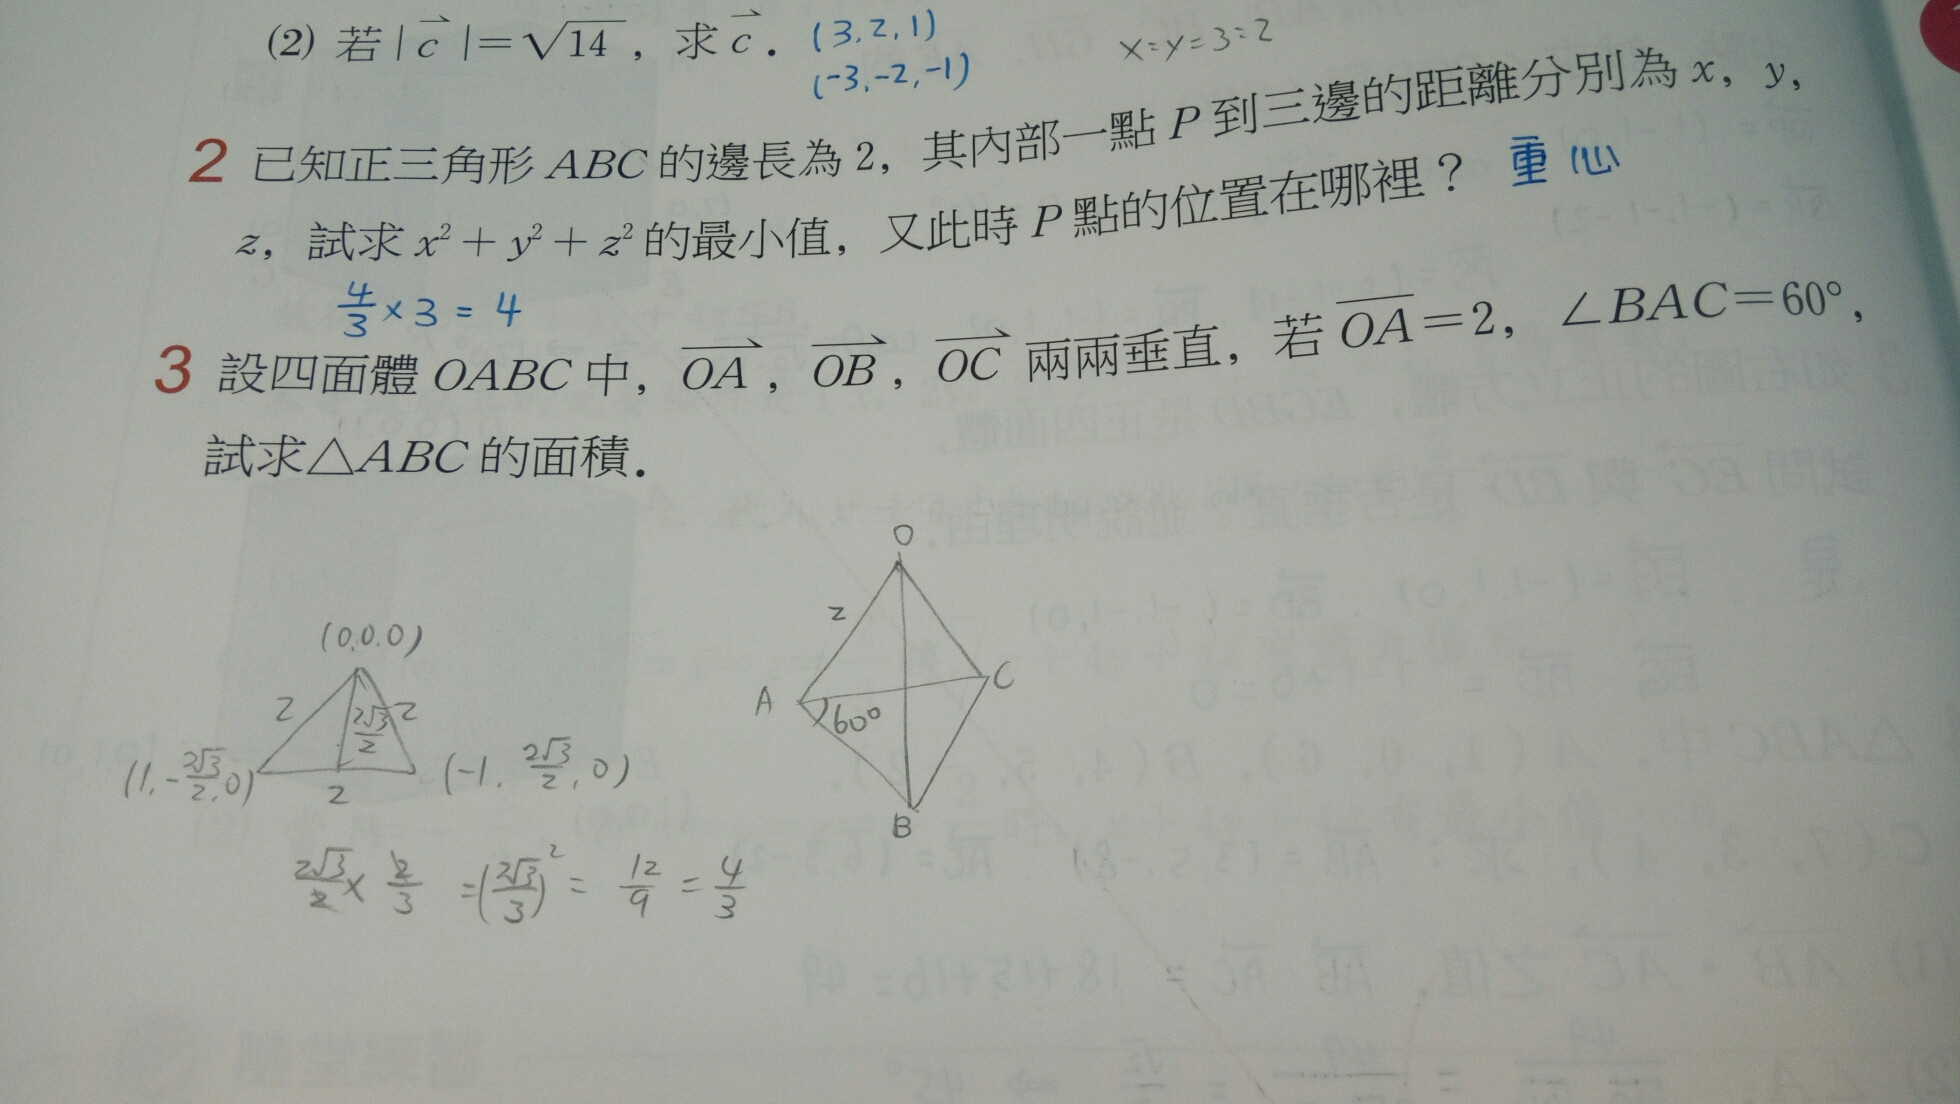 (2) 若|c⃗|=√14，求c⃗．(3,2,1)
(-3,-2,-1)
x=y=3=2
2 已知正三角形 ABC 的邊長為 2，其內部一點 P 到三邊的距離分別為 x，y，
z，試求 x²+y²+z² 的最小值，又此時 P 點的位置在哪裡？ 重心
4/3×3=4
3 設四面體 OABC 中，OA⃗，OB⃗，OC⃗ 兩兩垂直，若 OA̅=2，∠BAC=60°，
試求△ABC 的面積．
(0,0,0)
2 2√3/2 2
(1,-2√3/2,0) 2 (-1,2√3/2,0)
2√3/2×2/3=(2√3/3)²=12/9=4/3
O
2
A 60° C
B